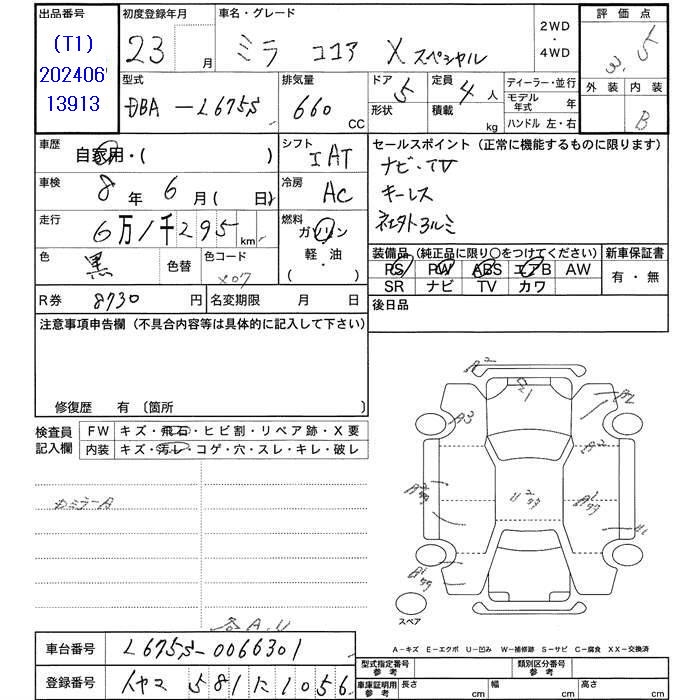 出品番号
(T1)
202406
13913
初度登録年月
23 月
車名・グレード
ミラ ココア X スペシャル
2WD
・
4WD
評価点
3.5
外装 内装
B
型式
DBA-L675S
排気量
660 CC
ドア 5
形状
定員 4 人
積載 kg
ディーラー・並行
モデル年式 年
ハンドル 左・右
車歴
自家用・( )
シフト
IAT
車検
8 年 6 月 ( 日)
冷房
AC
走行
6万1千295 km
燃料
ガソリン
軽・油
( )
色
黒
色替
色コード
X07
R券 8730 円
名変期限 月 日
セールスポイント (正常に機能するものに限ります)
ナビ・TV
キーレス
装備品 (純正品に限り〇をつけてください)
PS PW ABS エアB AW
SR ナビ TV カワ
新車保証書
有・無
後日品
注意事項申告欄 (不具合内容等は具体的に記入して下さい)
修復歴 有 〔箇所 〕
検査員
記入欄
FW キズ・飛石・ヒビ割・リペア跡・X要
内装 キズ・汚レ・コゲ・穴・スレ・キレ・破レ
カミラーA
各A.U
A2
A3
A2
A2
スペア
A-キズ E-エクボ U-凹み W-補修跡 S-サビ C-腐食 XX-交換済
車台番号 L675S-0066301
登録番号
581 に 1056
型式指定番号
参考
類別区分番号
参考
車庫証明用
参考
長さ cm
幅 cm
高さ cm